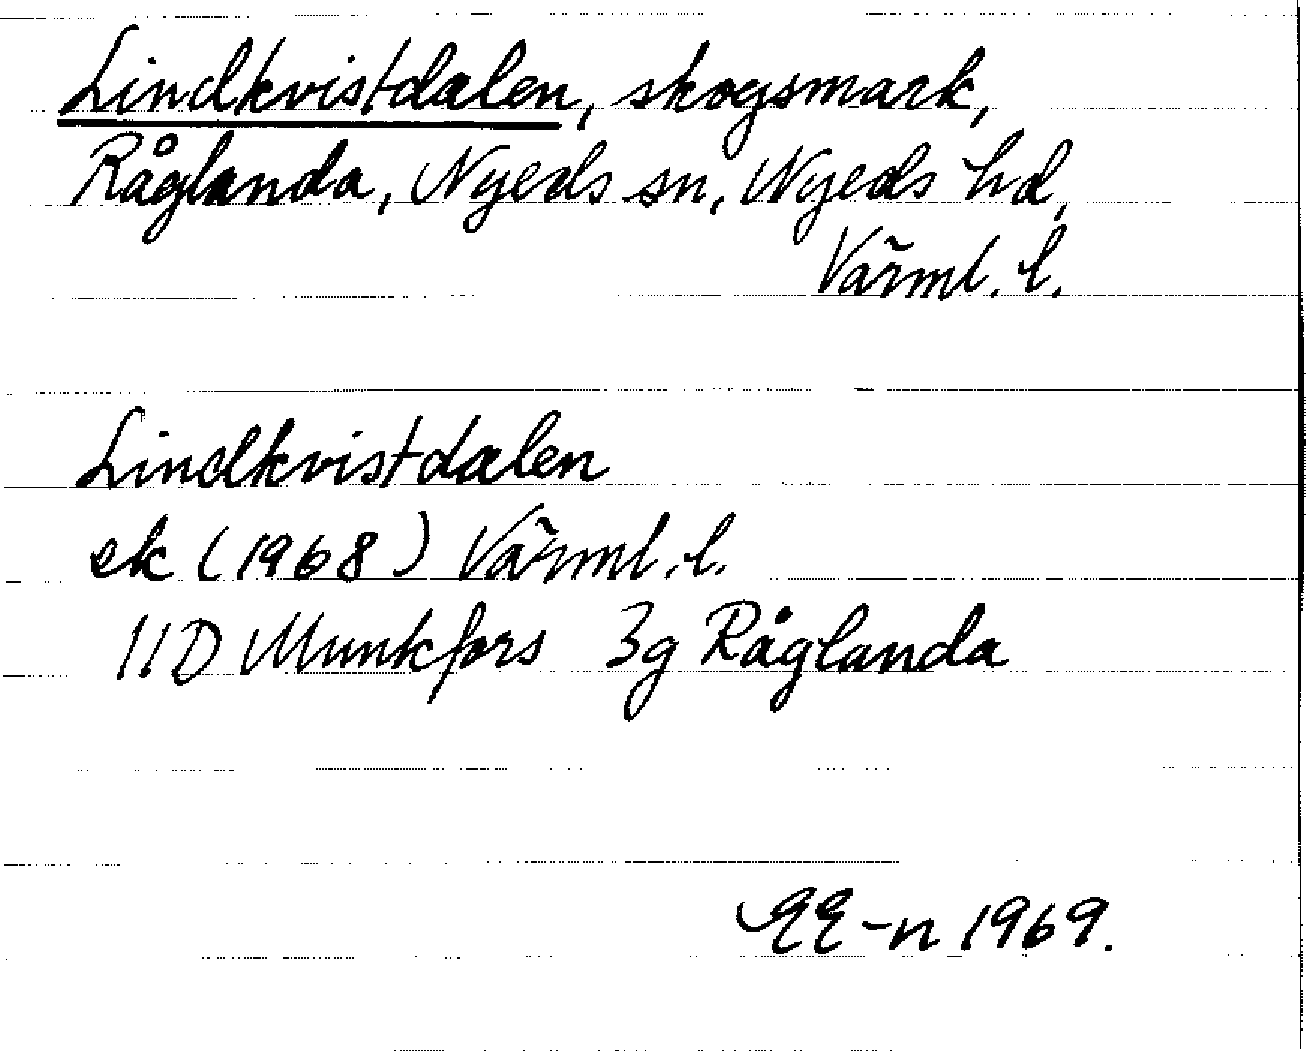 Lindkvistdalen, skogsmark,
Råglanda, Nyeds sn, Nyeds hd,
Värml. l.
Lindkvistdalen
ek (1968) Värml. l.
11D Munkfors 3g Råglanda
EE-n 1969.